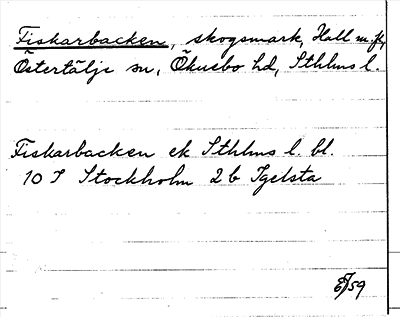 Fiskarbacken, skogsmark, Hall m. fl.,
Östertälje sn, Öknebo hd, Sthlms l.
Fiskarbacken ek Sthlms l. bl.
10 I Stockholm 2 b Igelsta